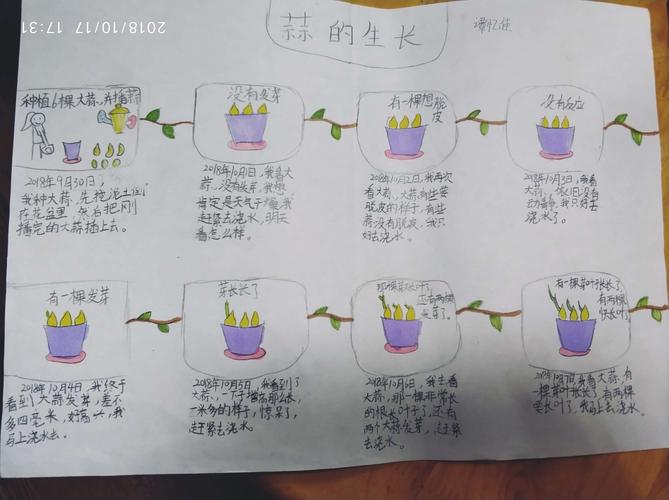 2018/10/17 17:31
蒜的生长
种植6棵大蒜,并播蒜
没有发芽
有一棵想脱
皮
没有反应
2018年9月30日,
我种大蒜,先挖泥土倒
在花盆里,然后把刚
播完的大蒜插上去。
2018年10月1日,我看大
蒜,没有发芽,我想
肯定是天气干燥,我
赶紧去浇水,明天
看怎么样。
2018年10月2日,我再次
看大蒜,大蒜有些要
脱皮的样子,有些
蒜没有脱皮,我只
好去浇水。
2018年10月3日,我看
大蒜,依旧没有
动静,我只好去
浇水了。
有一棵发芽
芽长长了
那棵芽长叶了,
还有两棵
发芽了。
有一棵芽叶长长了,
有两棵
快长叶
2018年10月4日,我终于
看到大蒜发芽,差不
多四毫米,好高兴,我
马上浇水去。
2018年10月5日,我看到了
大蒜,一下子增高那么长,
一米多的样子,惊呆了,
赶紧去浇水。
2018年10月6日,我去看
大蒜,那一棵非常长
的根长叶子了,还有
两个大蒜发芽,赶紧
去浇水。
2018年10月7日我看大蒜,有
一棵芽叶长长了,有两棵
要长叶了,我马上去浇水。